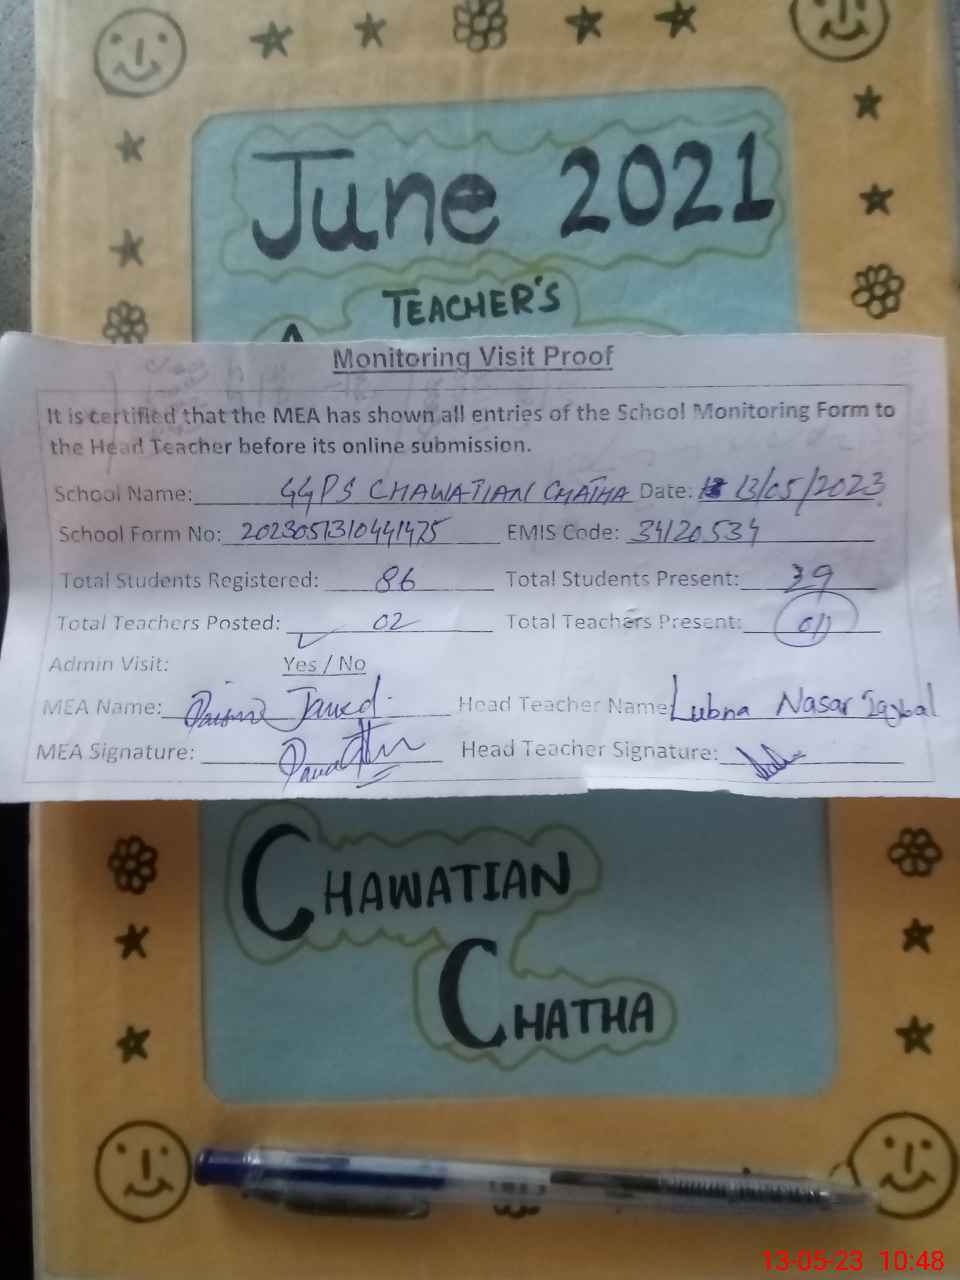 June 2021
TEACHER'S
Monitoring Visit Proof
It is certified that the MEA has shown all entries of the School Monitoring Form to
the Head Teacher before its online submission.
School Name: GGPS CHAWATIAN CHATHA Date: 13/05/2023
School Form No: 2023051310441475 EMIS Code: 34120534
Total Students Registered: 86 Total Students Present: 39
Total Teachers Posted: 02 Total Teachers Present: 01
Admin Visit: Yes / No
MEA Name: Javed Head Teacher Name: Lubna Nasar Iqbal
MEA Signature: Head Teacher Signature:
CHAWATIAN
CHATHA
13-05-23 10:48